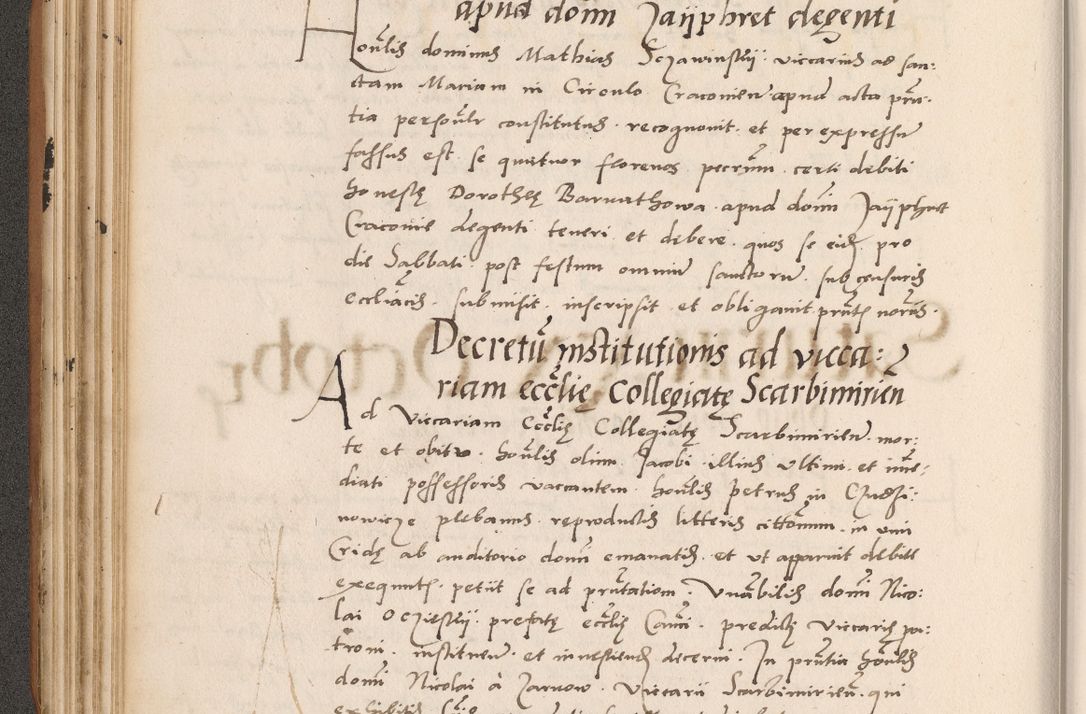 apud domi Jayphret degenti
Honlis dominus Mathias Sczawinskij viccarius ad san:
ctam Mariam in Circulo Cracovien apud acta prn
tia personlr constitutus recognovit et per expressum
fassus est se quatuor florenos pecrum certi debiti
honestę Dorotheę Barvathowa apud domi Jayphret
Cracovie degenti teneri et debere quos se eid pro
die Sabbati post festum omnium sanctorum sub censuris
eccliacis submisit inscripsit et obligavit prntibus norus
Decretum institutionis ad vicca:
riam eccclię Collegiatę Scarbimirien
Ad Viccariam Ecclię Collegiatę Scarbimirien mor:
te et obitu honlis olim Jacobi illius ultimi et imme:
diati possessoris vaccantem honlis Petrus in
nowicze plebanus reproductis litteris cittonum in vim
Cridę ab auditorio domi emanatis et ut apparuit debite
exequutis petiit se ad prntationem Vnabilis domi Nico:
lai Oczieskij prefatę ecclię Canci predictę Viccarię pa:
troni instituen et investiend decerni In prntia honlis
domi Nicolai à Zarnow Viccarii Scarbimirien qui